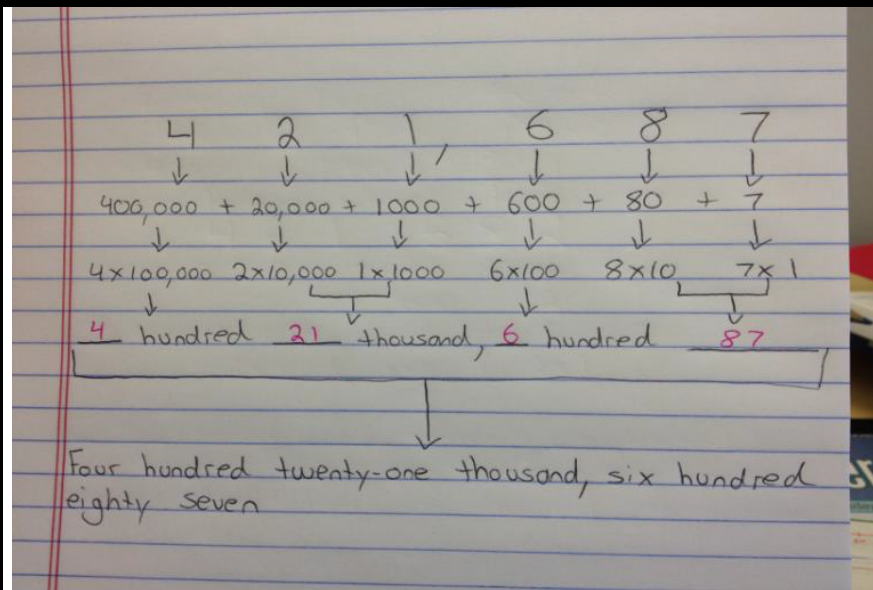 4 2 1, 6 8 7
400,000 + 20,000 + 1000 + 600 + 80 + 7
4x100,000 2x10,000 1x1000 6x100 8x10 7x1
4 hundred 21 thousand, 6 hundred 87
Four hundred twenty-one thousand, six hundred
eighty seven